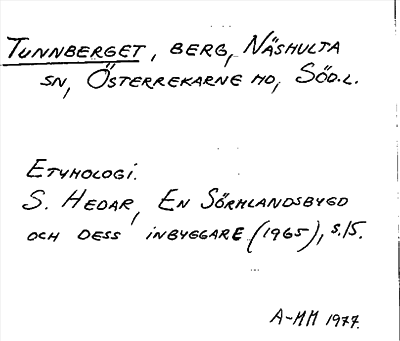 TUNNBERGET, BERG, NÄSHULTA
SN, ÖSTERREKARNE HD, SÖD.L.
ETYMOLOGI.
S. HEDAR, EN SÖRMLANDSBYGD
OCH DESS INBYGGARE (1965), S.15.
A-MM 1977.